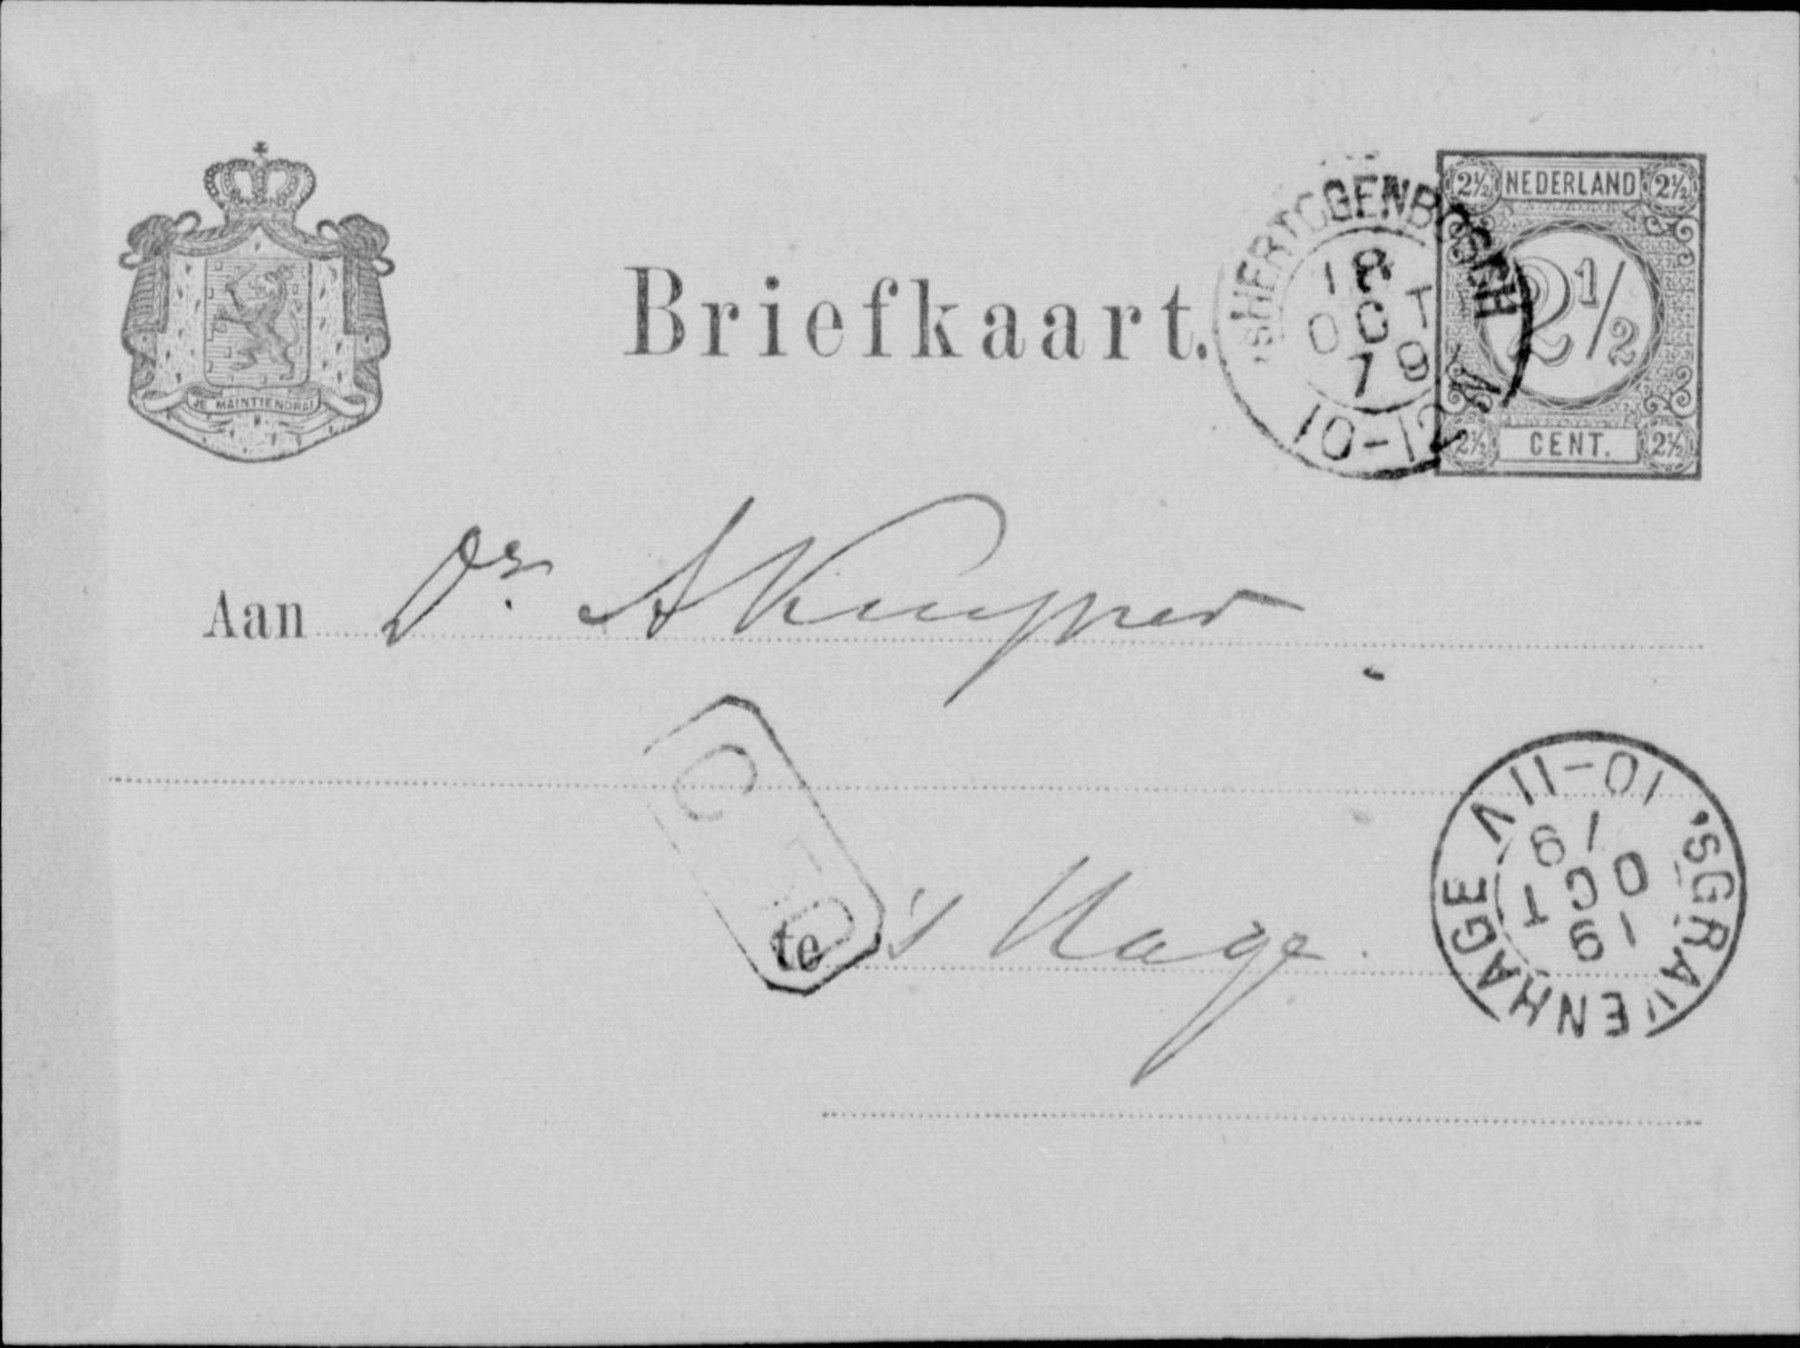 2½ NEDERLAND 2½
'sHERTOGENBOSCH
18
OCT
79
10-12 N
2½
2½ CENT. 2½
JE MAINTIENDRAI
Briefkaart.
Aan Dr. A Kuyper
'SGRAVENHAGE
10-11 V
19
OCT
te 's Hage.